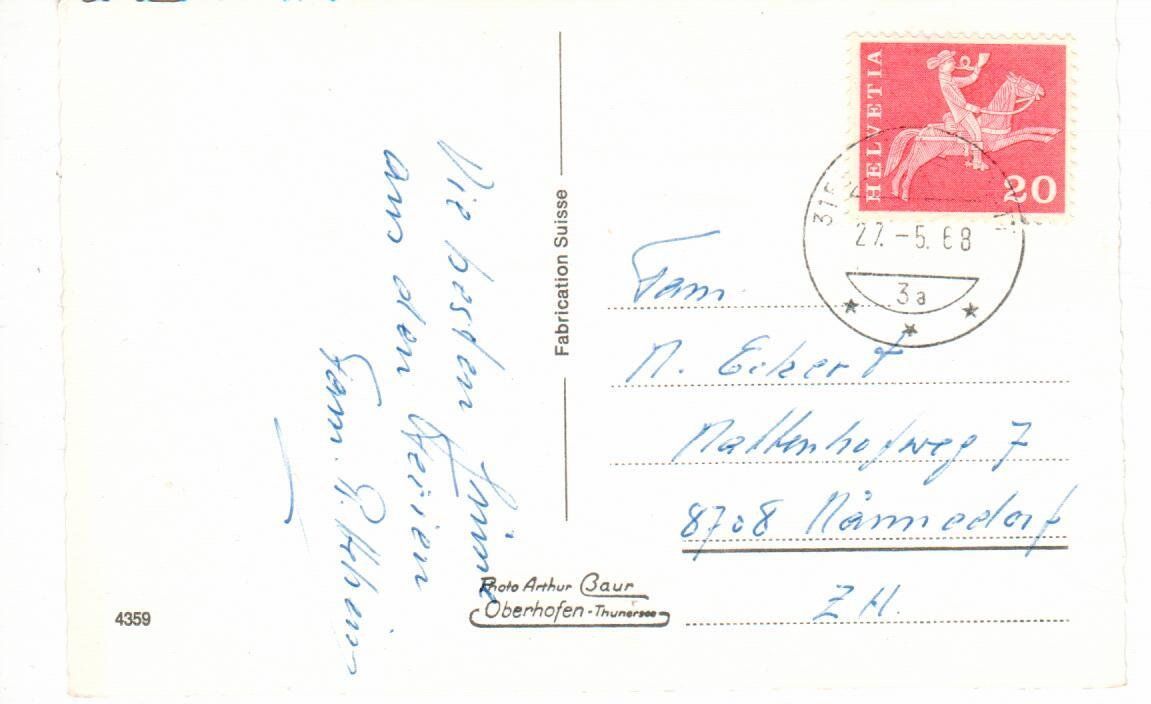 Die besten Grüsse
aus den Ferien
Fam.
4359
Fabrication Suisse
Photo Arthur Baur
Oberhofen - Thunersee
HELVETIA
20
27.-5.68
3a
Fam.
N. Eckert
Mattenhofweg 7
8708 Männedorf
ZH.